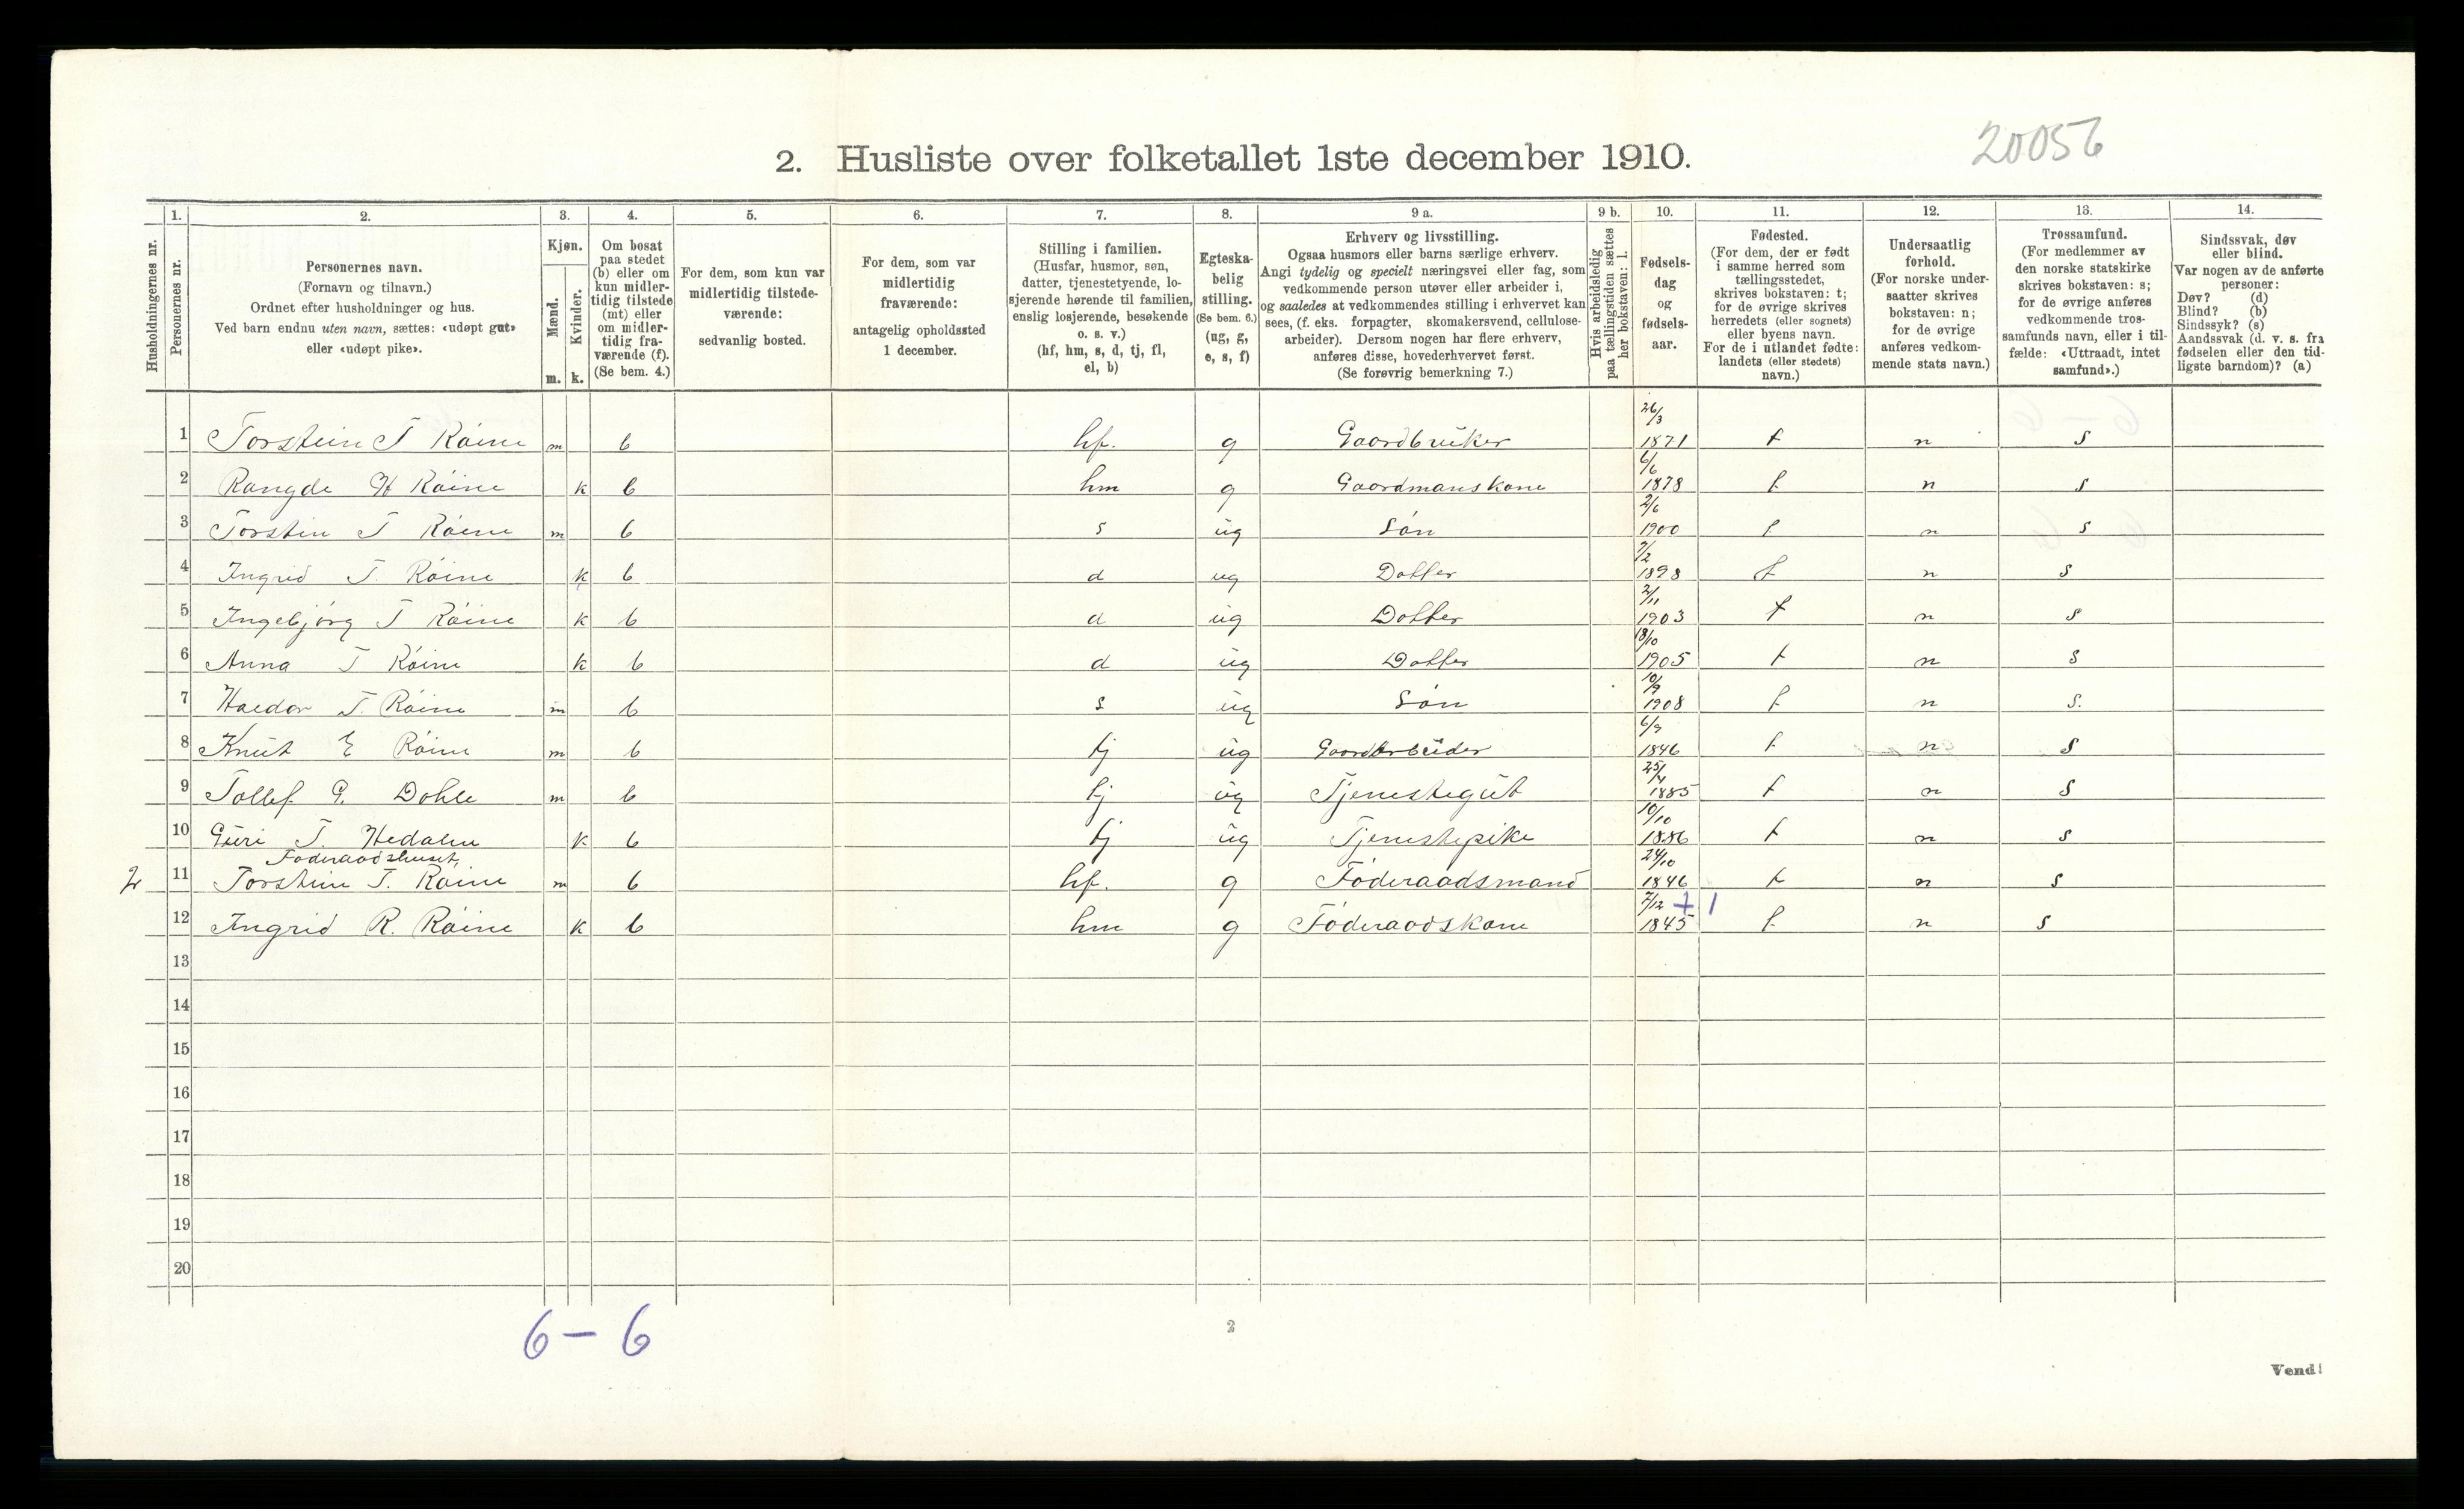 20056
2. Husliste over folketallet 1ste december 1910.
Husholdningernes nr.
1. Personernes nr.
2. Personernes navn.
(Fornavn og tilnavn.)
Ordnet efter husholdninger og hus.
Ved barn endnu uten navn, sættes: «udøpt gut»
eller «udøpt pike».
3. Kjøn.
Mænd. m.
Kvinder. k.
4. Om bosat
paa stedet
(b) eller om
kun midler-
tidig tilstede
(mt) eller
om midler-
tidig fra-
værende (f).
(Se bem. 4.)
5. For dem, som kun var
midlertidig tilstede-
værende:
sedvanlig bosted.
6. For dem, som var
midlertidig
fraværende:
antagelig opholdssted
1 december.
7. Stilling i familien.
(Husfar, husmor, søn,
datter, tjenestetyende, lo-
sjerende hørende til familien,
enslig losjerende, besøkende
o. s. v.)
(hf, hm, s, d, tj, fl,
el, b)
8. Egteska-
belig
stilling.
(Se bem. 6.)
(ug, g,
e, s, f)
9 a. Erhverv og livsstilling.
Ogsaa husmors eller barns særlige erhverv.
Angi tydelig og specielt næringsvei eller fag, som
vedkommende person utøver eller arbeider i,
og saaledes at vedkommendes stilling i erhvervet kan
sees, (f. eks. forpagter, skomakersvend, cellulose-
arbeider). Dersom nogen har flere erhverv,
anføres disse, hovederhvervet først.
(Se forøvrig bemerkning 7.)
9 b. Hvis arbeidsledig
paa tællingstiden sættes
her bokstaven: l.
10. Fødsels-
dag
og
fødsels-
aar.
11. Fødested.
(For dem, der er født
i samme herred som
tællingsstedet,
skrives bokstaven: t;
for de øvrige skrives
herredets (eller sognets)
eller byens navn.
For de i utlandet fødte:
landets (eller stedets)
navn.)
12. Undersaatlig
forhold.
(For norske under-
saatter skrives
bokstaven: n;
for de øvrige
anføres vedkom-
mende stats navn.)
13. Trossamfund.
(For medlemmer av
den norske statskirke
skrives bokstaven: s;
for de øvrige anføres
vedkommende tros-
samfunds navn, eller i til-
fælde: «Uttraadt, intet
samfund».)
14. Sindssvak, døv
eller blind.
Var nogen av de anførte
personer:
Døv? (d)
Blind? (b)
Sindssyk? (s)
Aandssvak (d. v. s. fra
fødselen eller den tid-
ligste barndom)? (a)
1 Torstein T Röine m b hf. g Gaordbruker 26/3 1871 t n s
2 Rangde H Röine k b hm g Gaordmanskone 6/6 1878 t n s
3 Torstin T Röine m b s ug Sön 2/6 1900 t n s
4 Ingrid T. Röine k b d ug Dotter 7/2 1898 t n s
5 Ingebjörg T Röine k b d ug Dotter 2/11 1903 t n s
6 Anna T Röine k b d ug Dotter 18/10 1905 t n s
7 Haldor T. Röine m b s ug Sön 10/9 1908 t n s.
8 Knut E Röine m b tj ug Gaordarbeider 6/9 1846 t n s
9 Tollef G. Dohle m b tj ug Tjenestegut 25/4 1885 t n s
10 Guri T. Hedalen k b tj ug Tjenestepike 10/10 1886 t n s
Föderaadshuset
2 11 Torstein T. Röine m b hf. g Föderaadsmand 24/10 1846 t n s
12 Ingrid R. Röine k b hm g Föderaadskone 7/12 1845 t n s
13
14
15
16
17
18
19
20
6 – 6
2
Vend!